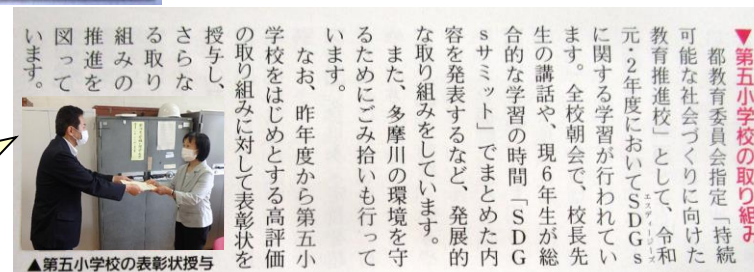 ▼第五小学校の取り組み
都教育委員会指定「持続
可能な社会づくりに向けた
教育推進校」として、令和
元・2年度においてSDGs
エスディージーズ
に関する学習が行われてい
ます。全校朝会で、校長先
生の講話や、現6年生が総
合的な学習の時間「SDG
sサミット」でまとめた内
容を発表するなど、発展的
な取り組みをしています。
また、多摩川の環境を守
るためにごみ拾いも行って
います。
なお、昨年度から第五小
学校をはじめとする高評価
の取り組みに対して表彰状を
授与し、
さらな
る取り
組みの
推進を
図って
います。
▲第五小学校の表彰状授与